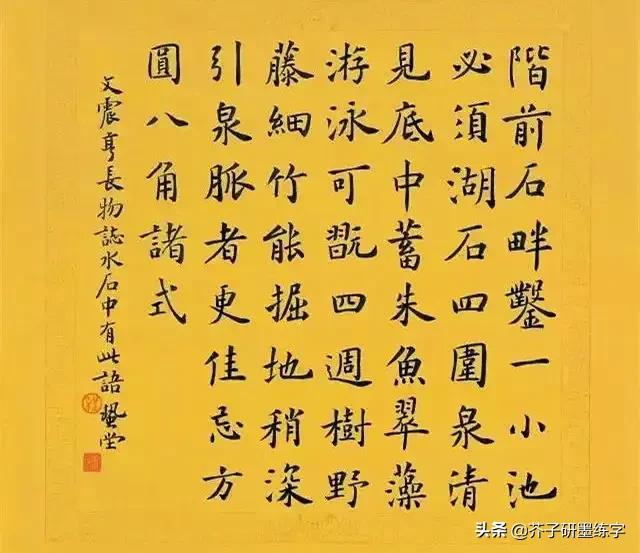 階前石畔鑿一小池
必須湖石四圍泉清
見底中蓄朱魚翠藻
游泳可翫四週樹野
藤細竹能掘地稍深
引泉脈者更佳忌方
圓八角諸式
文震亨長物誌水石中有此語 堂
头条 @芥子研墨练字